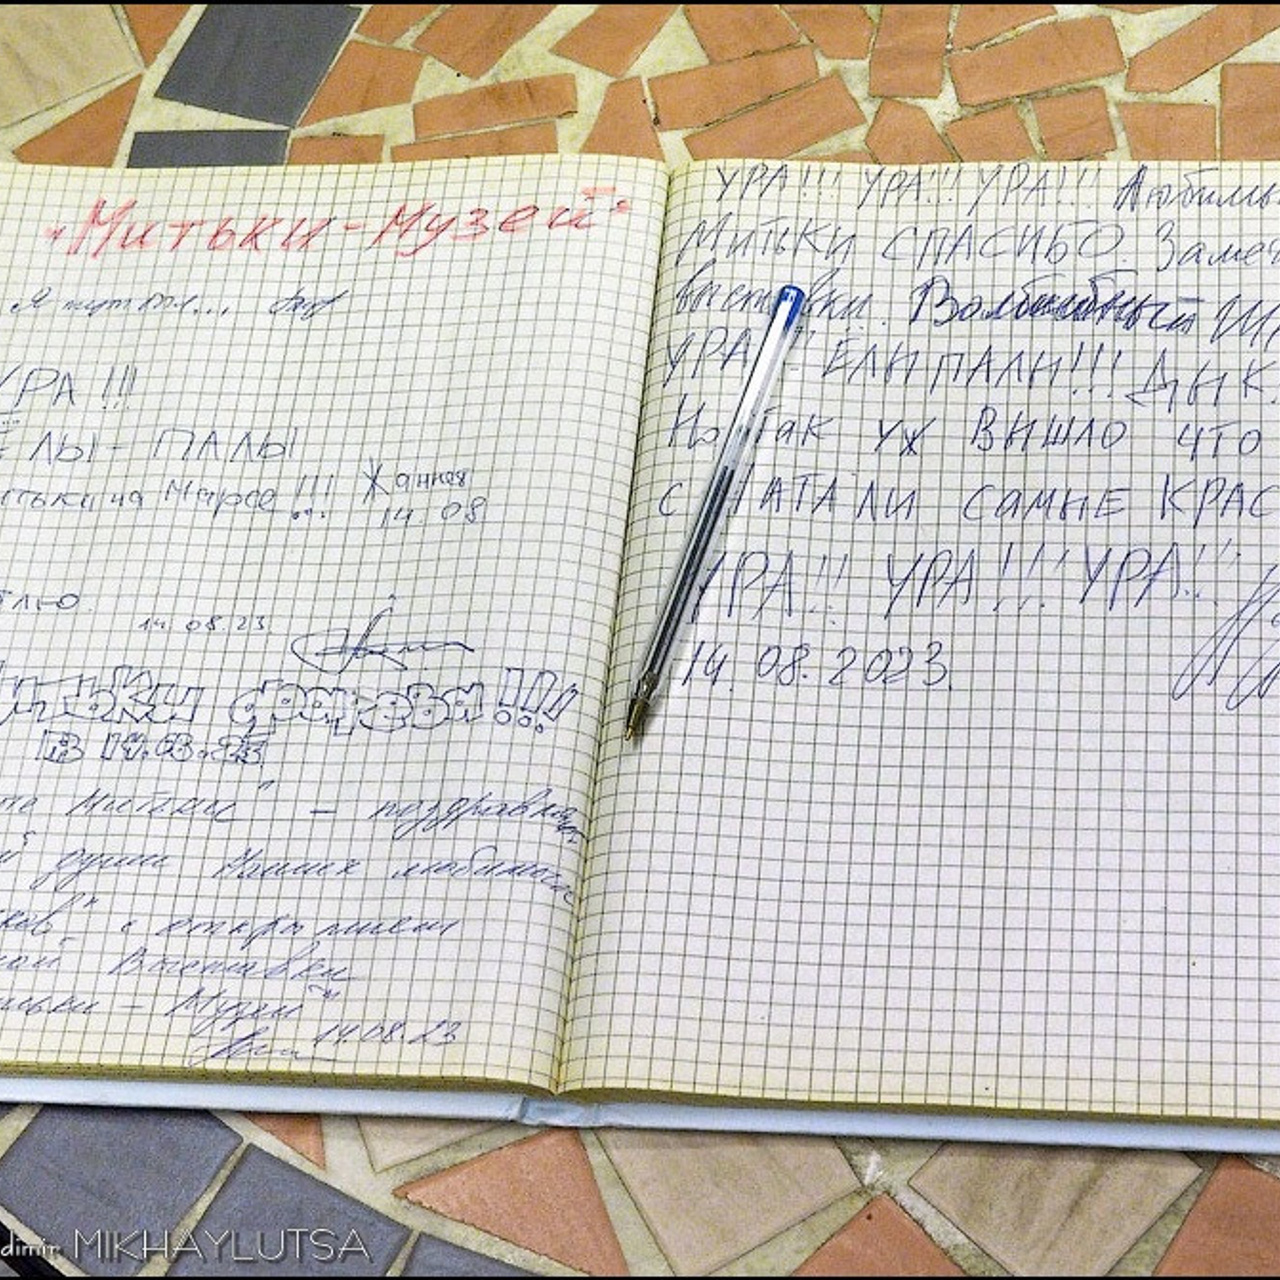 "Митьки-Музей"
Я
УРА!!!
ЁЛЫ-ПАЛЫ
на Марсе!!! Жанная
14.08
14.08.23
форева!!!
14.08.23
Митьки" – поздравляют
души Наших любимых
с открытием
Выставки
– Музей"
14.08.23
УРА!!! УРА!!! УРА!!! Любимы
Митьки СПАСИБО. Замеч
выставки. Волшебный
УРА!!! ЁЛЫ ПАЛЫ!!! ДЫК
Но Так уж ВЫШЛО ЧТО
С НАТАЛИ САМЫЕ КРАС
УРА!!! УРА!!! УРА!!
14.08.2023.
MIKHAYLUTSA